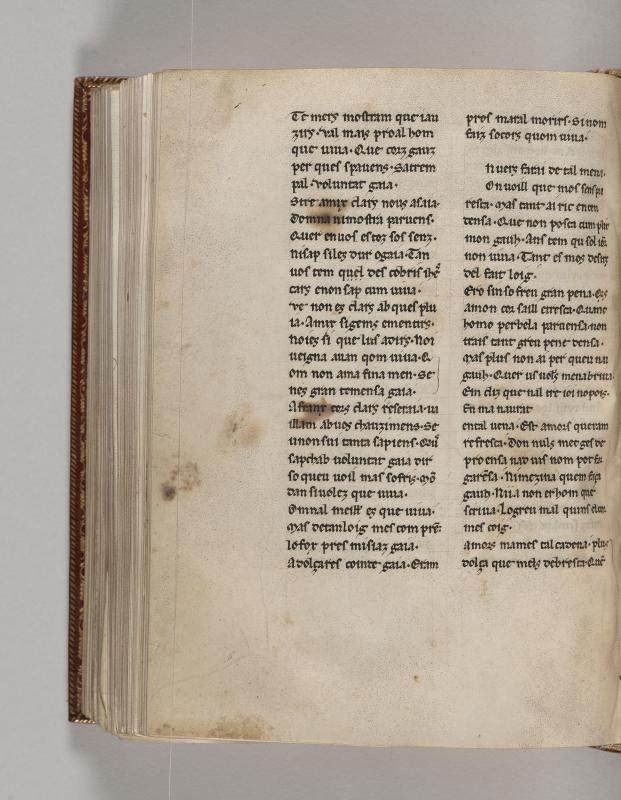 Te mers mostram que iau
zirs. Val mais pro al hom
que uiua. Que corz gauz
per ques spauens. Satrem
pal. Voluntat gaia.
Sire amix clars nous asaia.
Domna nimostra paruens.
Quer en uos estoz sos senz.
nisap silez dur ogaia. Tan
uos tem quel des cobris
cars enon sap cum uiua.
ve non ez clars ab ques plu
ia. Amix sigems ementirs.
noiez si que lus auirs. Noi
ueigna auan qom uiua. Q
om non ama fina men. Se
nes gran temensa gaia.
A franx cors clars reseraia. ui
illam ab uos chauzimens. Se
unon sui tanta sapiens.
sapchab uoluntat gaia dir
so queu uoil mas sofris.
dan si uolez que uiua.
Om nal meill ez que uiua.
Mas de tanloig mes com
lofox pres misiaz gaia.
A dolzares cointe gaia. Eram
pros maral morirs. Si nom
faiz socors quom uiua.
n ueis farai de tal mena.
On uoill que mos sens
resta. Mas tant ai ric enten
densa. Que non posca cum plir
mon gauh. Ans tem qu sol
non uiua. Tant es mos desirs
del fait loig.
Ero sin sofreu gran pena.
a mon cor saill eiresta. Quanc
homo per bela paruensa. non
trais tant greu pene tensa.
Mas plus non ai per queu nai
gauh. Quer us uols men abriua.
E in diz que nal tre ioi no pois.
En ma naurat
en tal uena. Est amors queram
refresca. Don nuls metges de
proensa nad uis nom pot
garensa. Ni mezina queram faza
gauh. Ni ia non er hom que
scriua. Logreu mal quim
mes coig.
Amors mames tal cadena. plus
dolza que mels de bresca.